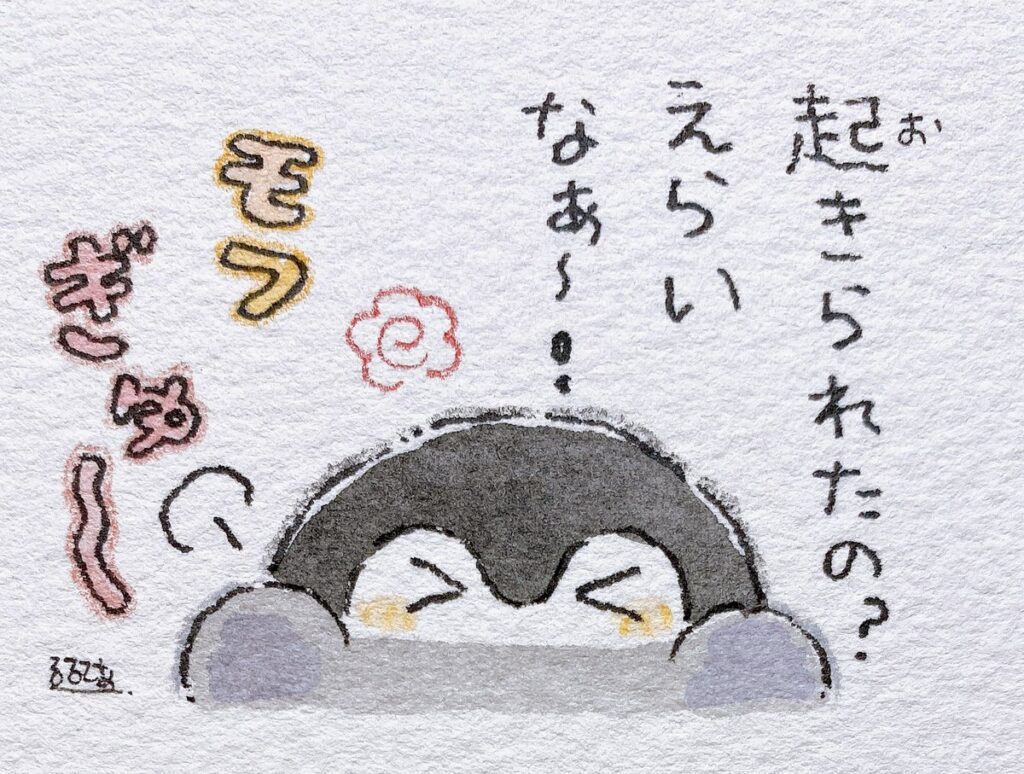 起きられたの?
お
えらい
なぁ〜!!
モフ
ぎゅ〜
るるてあ